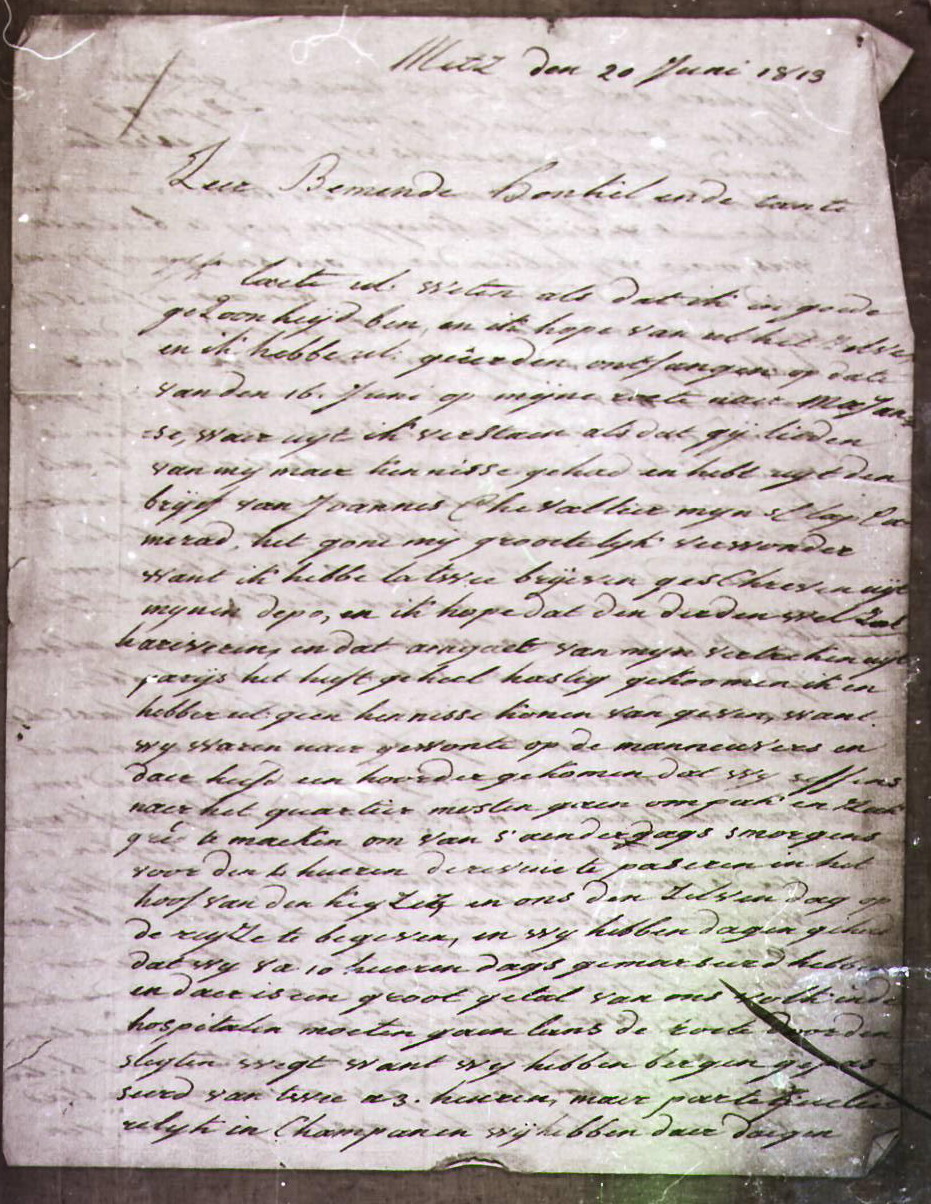 Metz den 20 Juni 1813
Zeer Bemende Honkel ende tante
laete ul. weten als dat ik in goede
gezoonheijd ben, en ik hope van ul het zelve
en ik hebbe ul. geerden ontfangen op date
van den 16. Juni op mijne roete naer Mayan
se, waer uyt ik verstaen als dat gij lieden
van mij maer kennisse gehad en hebt uyt den
brijf van Joannes Chevallier mijn Slap Ca
merad, het gone mij grootelyk verwonder
want ik hebbe la twee brijeven geschreven uyt
mijnen depo, en ik hope dat den derden wel zal
hariveren, en dat aengaet van mijn vertreken uyt
parijs het heeft geheel hastig gekoomen ik en
hebbe ul. geen kennisse konen van geven, want
wij waren naer gewonte op de manneuvers en
daer heeft een hoorder gekomen dat wij seffens
naer het quartier mosten gaen om pak en zak
gré te maeken om van s'aenderdags smorgens
voor den 4 hueren de revuie te paseren in het
hoof van den keyzer, en ons den zelven dag op
de reyze te begeven, en wij hebben dagen gehad
dat wij va 10 hueren dags gemarseerd hebben
en daer is een groot getal van ons volk inde
hospitalen moeten gaen lans de roete door den
sleyten wegt want wij hebben bergen gepas
seerd van twee a 3. hueren, maer partequelie
relyk in Champanen wij hebben daer dagen